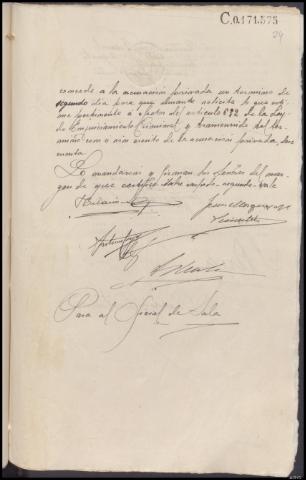 C.0.171.575
24
concede a la acusación privada un término de
segundo dia para que durante solicite lo que esti
me pertinente a efectos del artículo 892 de la Ley
de Enjuiciamiento Criminal y transcurrido tal tér
mino con o sin escrito de la acusación privada, dese
cuenta.
Lo mandaron y firman los Señores del mar
gen de que certifico. Sobre raspado, segundo. Vale
Para al Fiscal de Sala